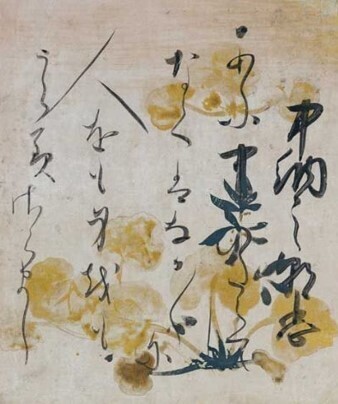 中納言朝忠
あふ事のたえてし
なくはなか〱に
人をも身をも
うらみさらまし